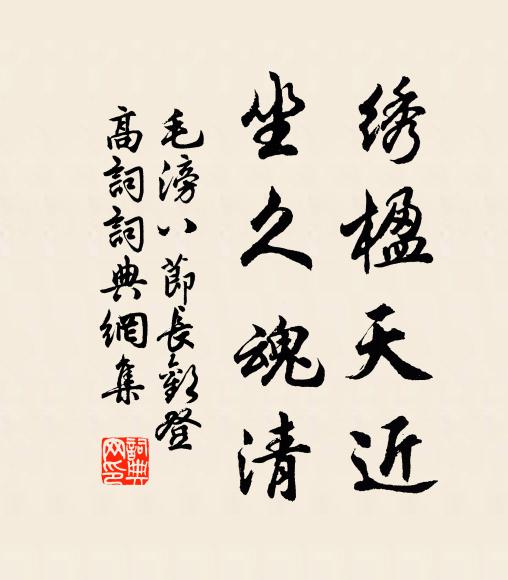 绣楹天近
坐久魂清
毛滂八節長歡登
高詞詞典網集
詞典
网印